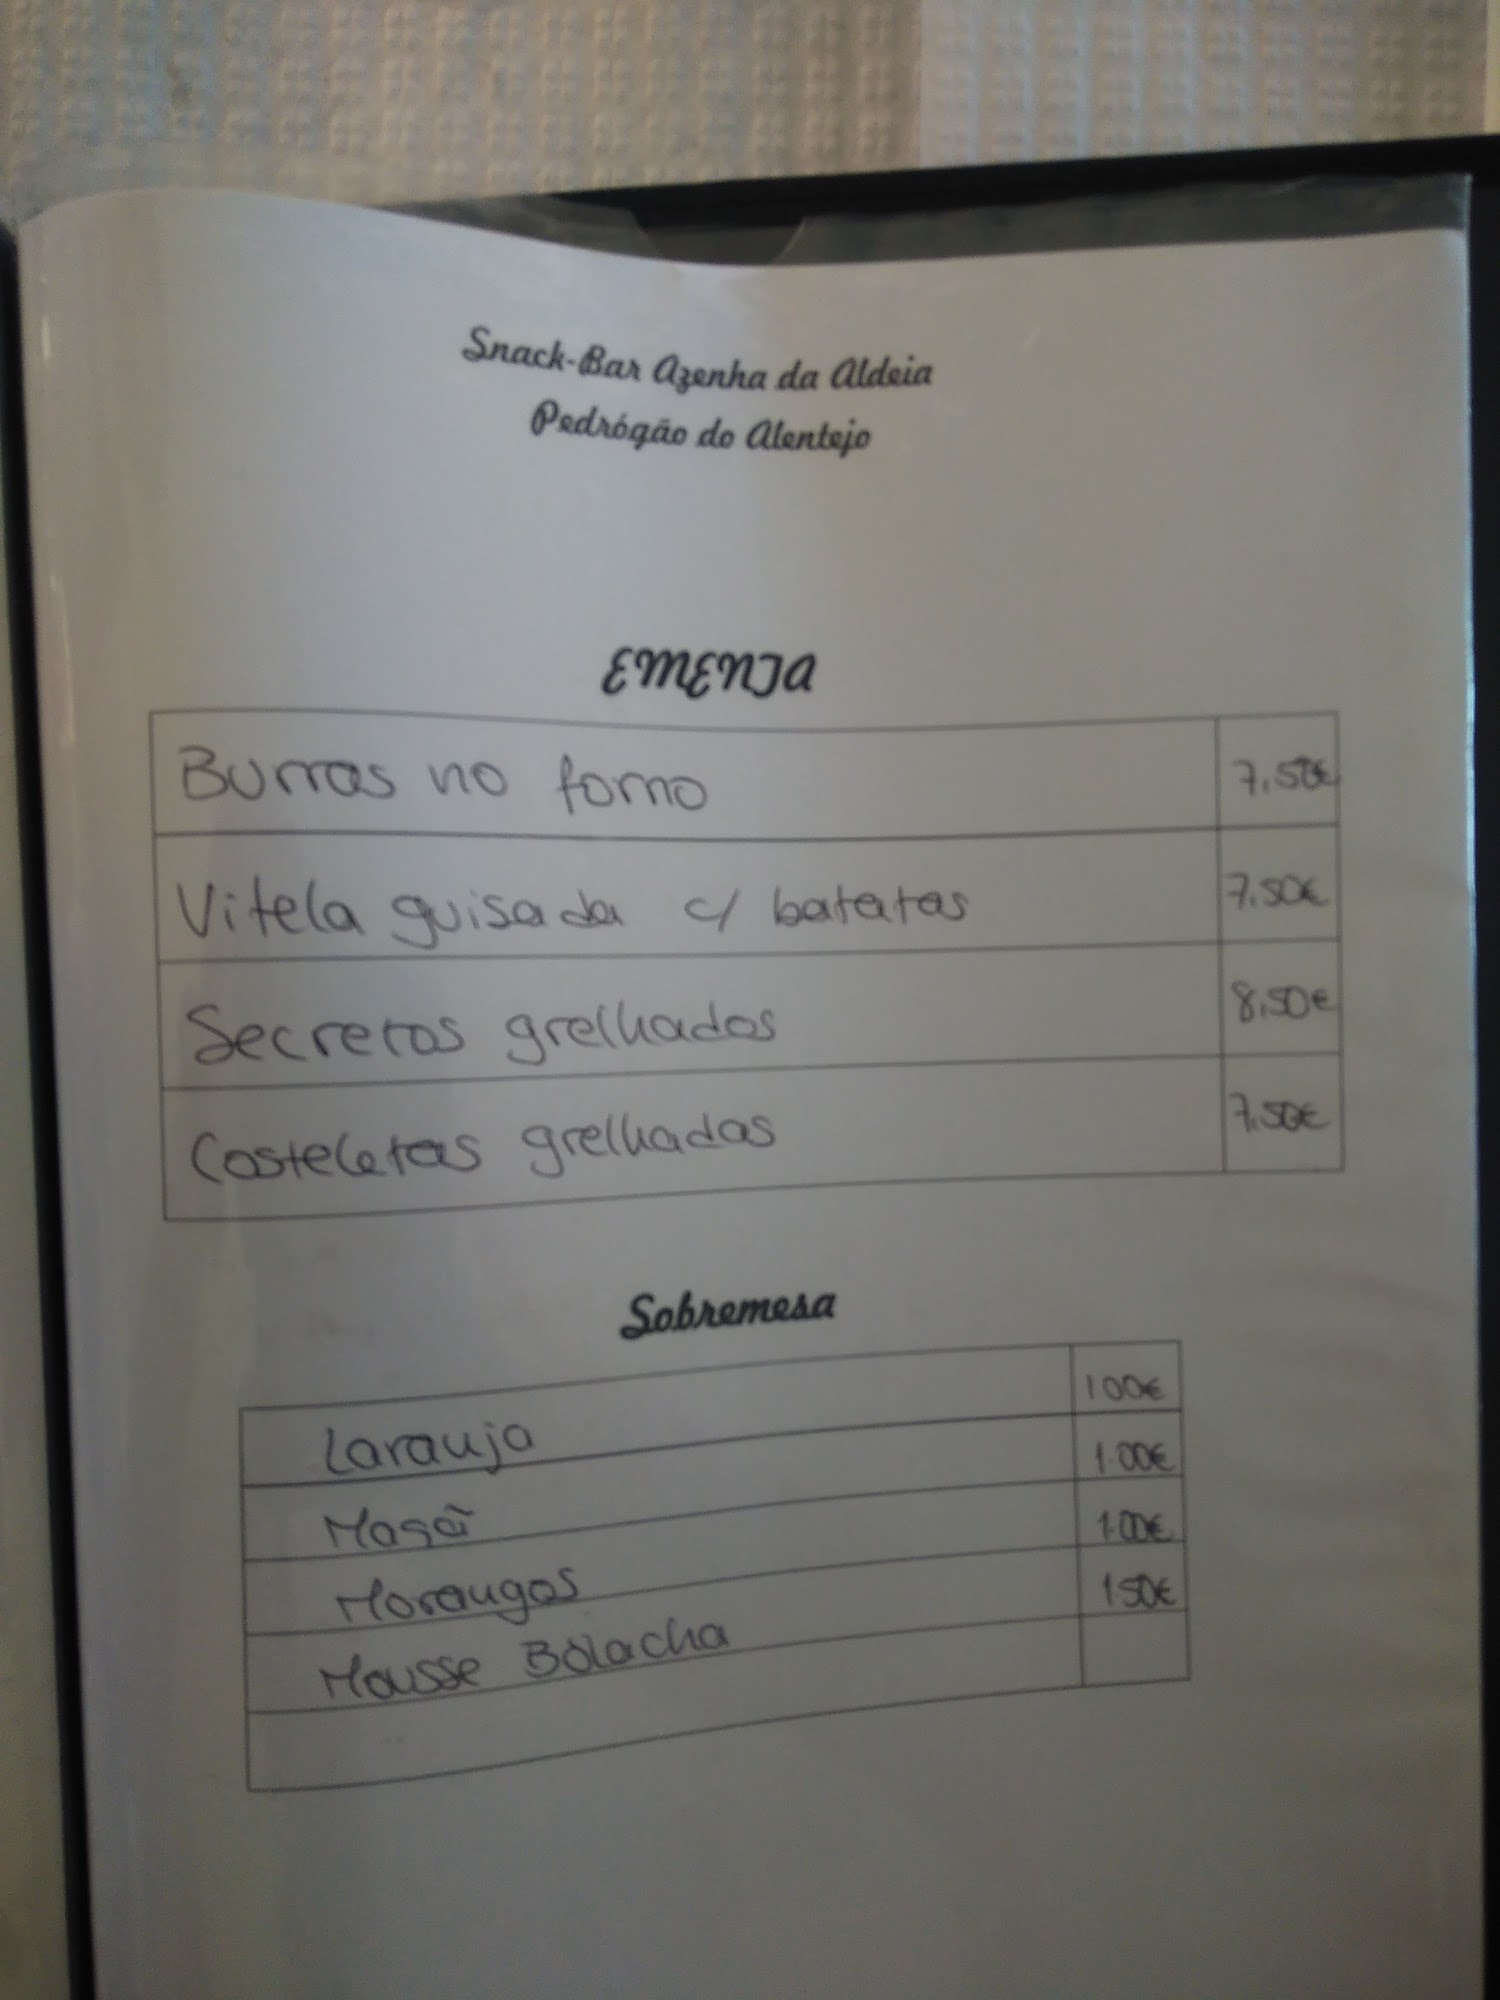 Snack-Bar Azenha da Aldeia
Pedrógão do Alentejo
EMENTA
Burras no forno 7.50€
Vitela guisada c/ batatas 7.50€
Secretos grelhados 8.50€
Costeletas grelhadas 7.50€
Sobremesa
Laranja 1 00€
Maçã 1.00€
Morangos 1.00€
Mousse Bolacha 1 50€